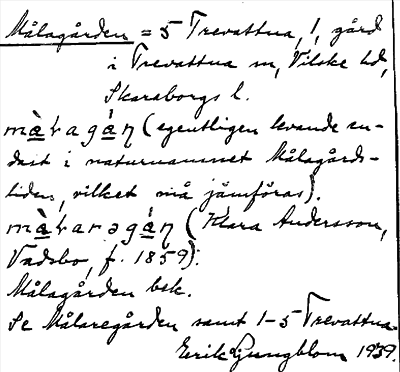 Målagården = 5 Trevattna, 1, gård
i Trevattna sn, Vilske hd,
Skaraborgs l.
màłagáṇ (egentligen levande en-
dast i naturnamnet Målagårds-
liden, vilket må jämföras).
màłarəgáṇ (Klara Andersson,
Vadsbo, f. 1859).
Målagården bek.
Se Målaregården samt 1-5 Trevattna.
Erik Ljungblom 1939.